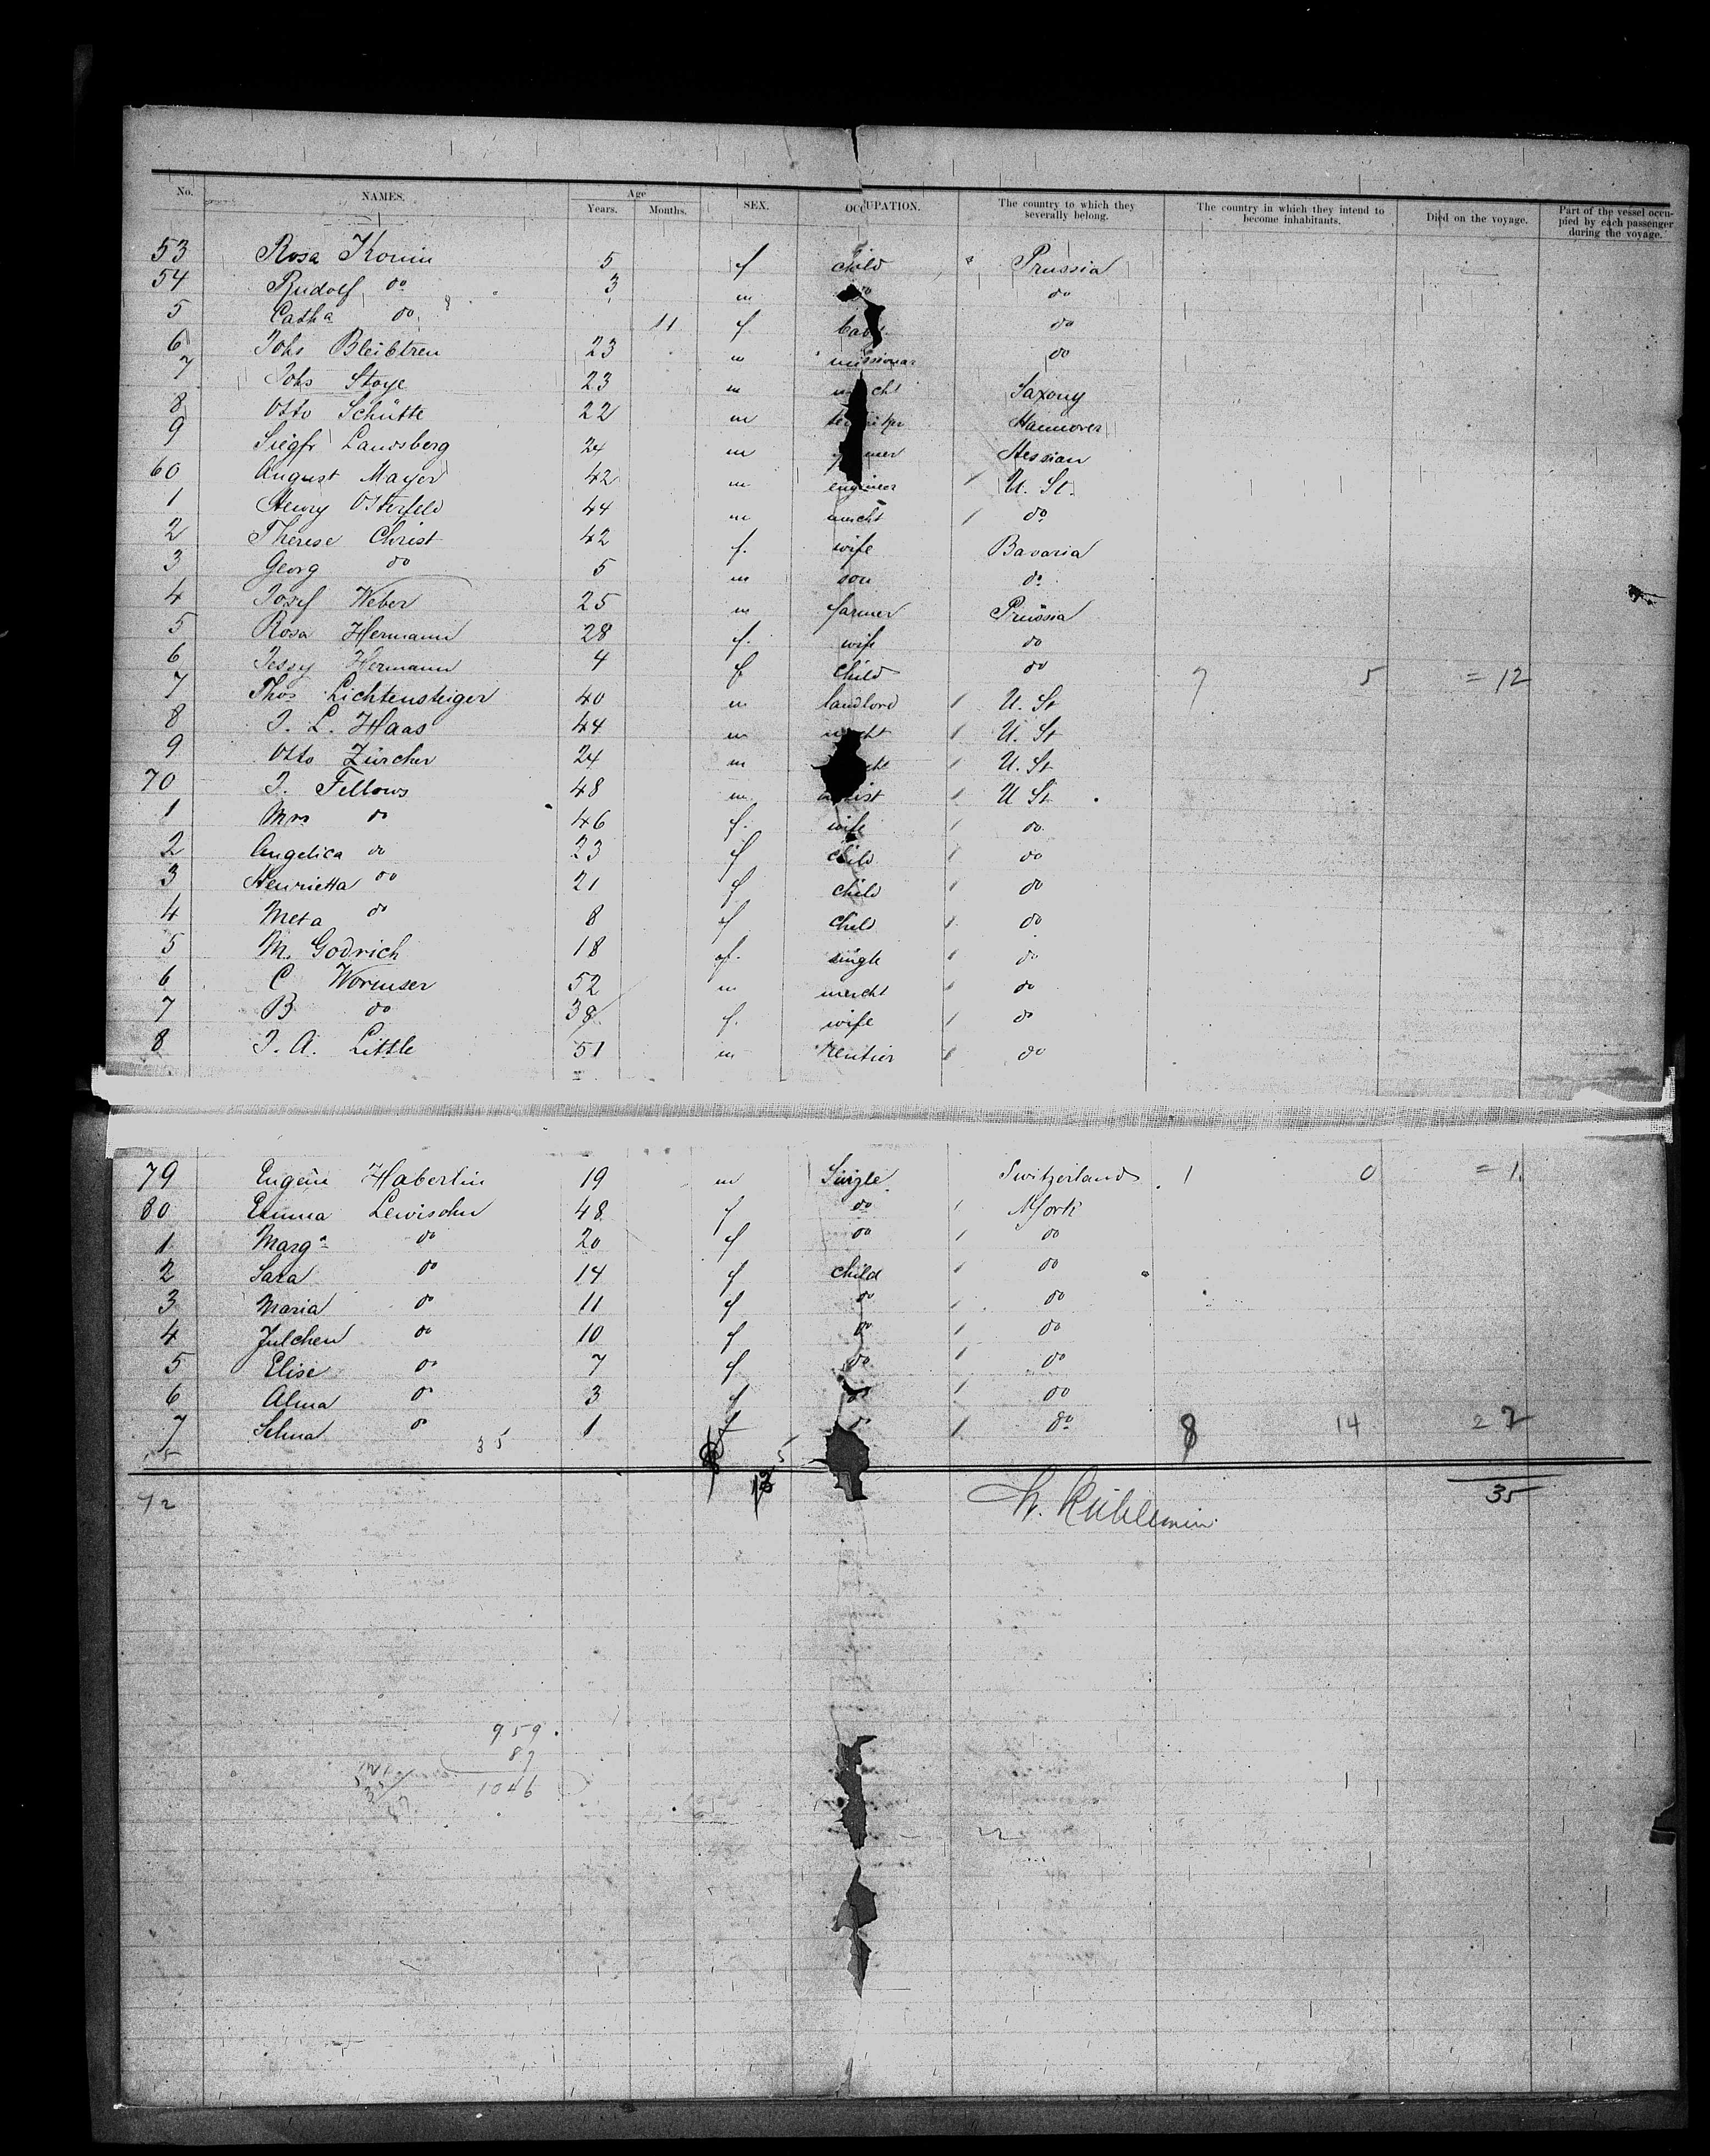 No. NAMES. Age Years. Months. SEX. OCCUPATION. The country to which they severally belong. The country in which they intend to become inhabitants. Died on the voyage. Part of the vessel occupied by each passenger during the voyage.
53 Rosa Konin 5 f child Prussia
54 Rudolf do 3 m do do
5 Catha do 11 f baby do
6 Johs Bleibtreu 23 m missionar do
7 Johs Stoye 23 m Saxony
8 Otto Schütte 22 m Hannover
9 Siegfr Landsberg 24 m Hessian
60 August Mayer 42 m engineer U. St.
1 Henry Osterfeld 44 m mercht do
2 Therese Christ 42 f. wife Bavaria
3 Georg do 5 m son do
4 Josef Weber 25 m farmer Prussia
5 Rosa Hermann 28 f. wife do
6 Jessy Hermann 4 f child do 7 5 = 12
7 Thos Lichtensteiger 40 m landlord 1 U. St
8 J. L. Haas 44 m 1 U. St
9 Otto Zürcher 24 m 1 U. St
70 J. Fellows 48 m 1 U St
1 Mrs do 46 f. wife 1 do
2 Angelica do 23 f child 1 do
3 Henrietta do 21 f child 1 do
4 Meta do 8 f child 1 do
5 M. Godrich 18 f. single 1 do
6 C Wormser 52 m mercht 1 do
7 B do 38 f. wife 1 do
8 J. A. Little 51 m rentier 1 do
79 Eugen Haberlin 19 m Single Switzerland 1 0 = 1
80 Emma Lewisohn 48 f do 1 NYork
1 Marga do 20 f do 1 do
2 Sara do 14 f child 1 do
3 Maria do 11 f do 1 do
4 Julchen do 10 f do 1 do
5 Elise do 7 f do 1 do
6 Alma do 3 f do 1 do
7 Selma do 1 f do 1 do 8 14 22
35
35
959
87
1046